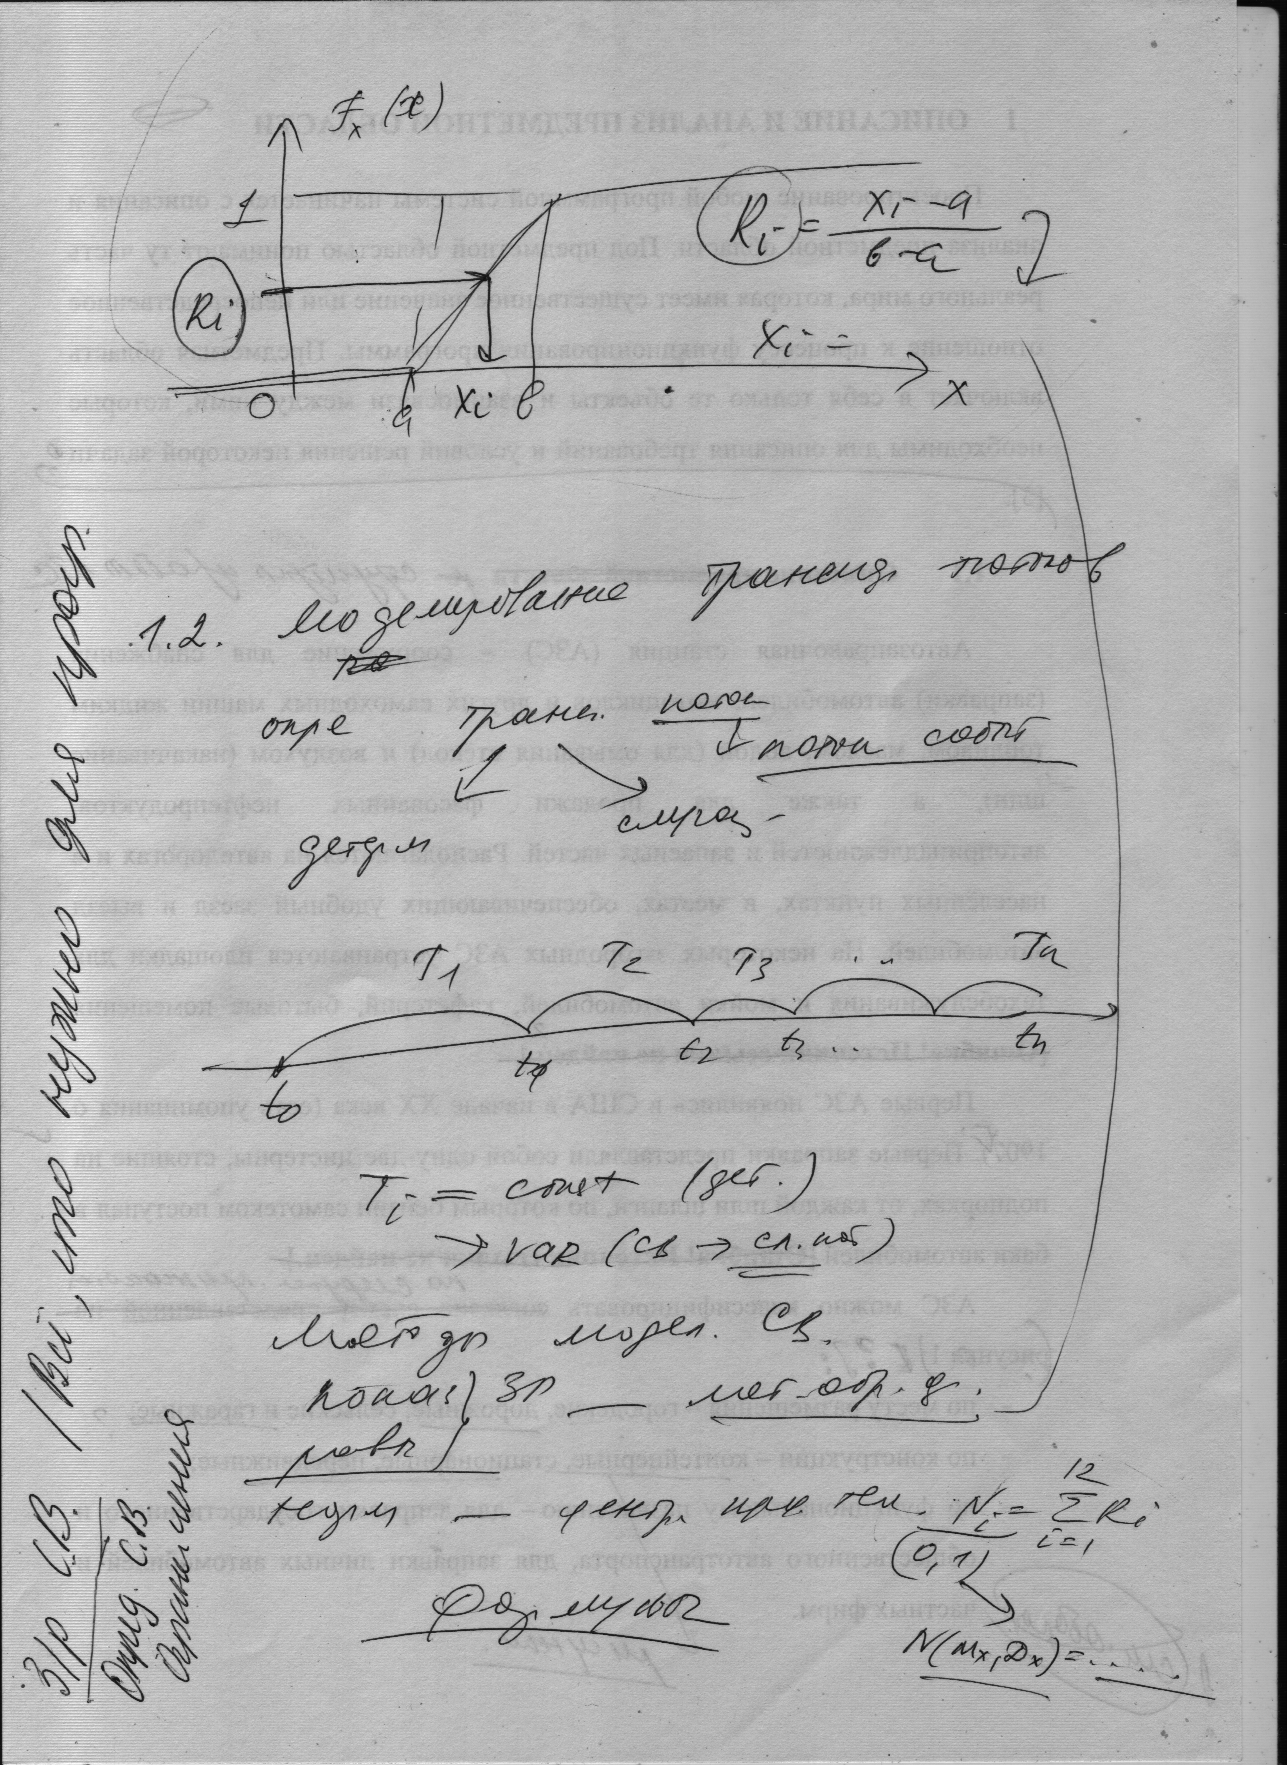 Fx(x)
1
Ri = (xi - a) / (в - a)
Ri
xi =
0 a xi в x
1.2. Моделирование трансп. потоков
опре трансп. поток
поток событ
детерм
случ.
T1 T2 T3 ... Tn
t0 t1 t2 t3 ... tn
Ti = const (дет.)
→ var (св → сл. пот)
Методы модел. СВ.
показ) ЗР — мет. обр. ф.
равн)
норм — центр. пред. теор. Ni = Σ Ri
12
i=1
(0,1)
Формулы
N(Mx, Dx) = .....
З/р С.В. / Всё, что нужно для прогр.
Опред. С.В.
Ограничения